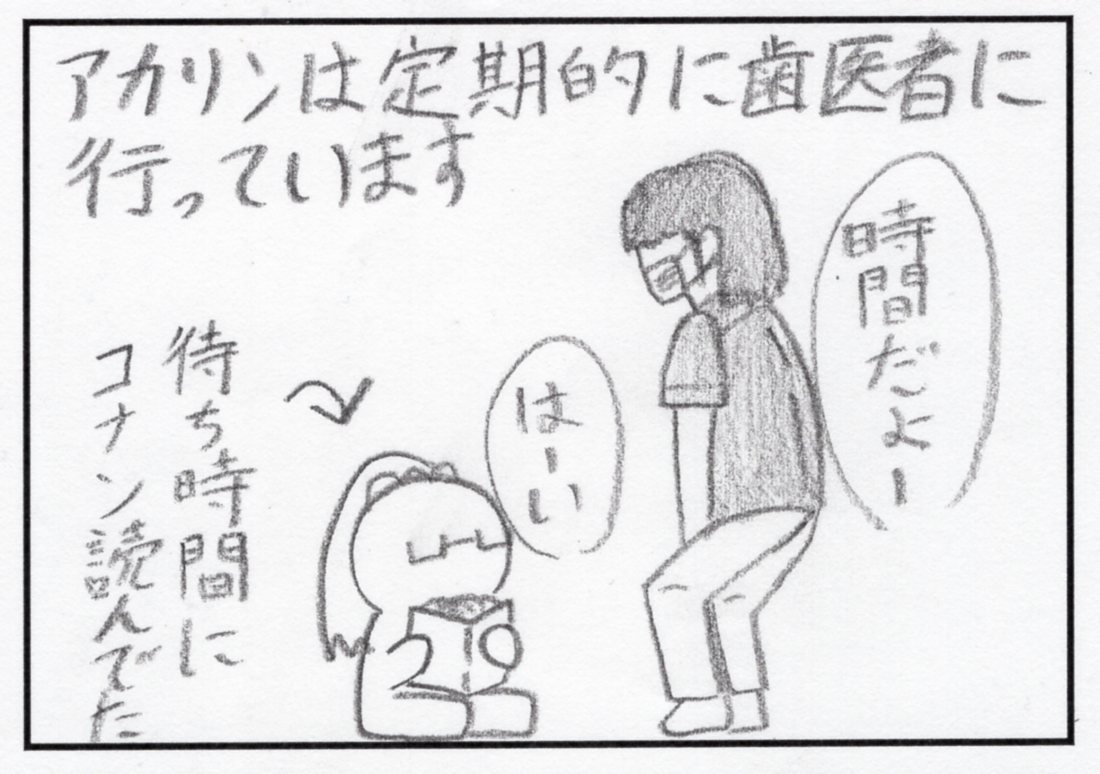 アカリンは定期的に歯医者に
行っています
時間だよー
はーい
待ち時間に
コナン読んでた